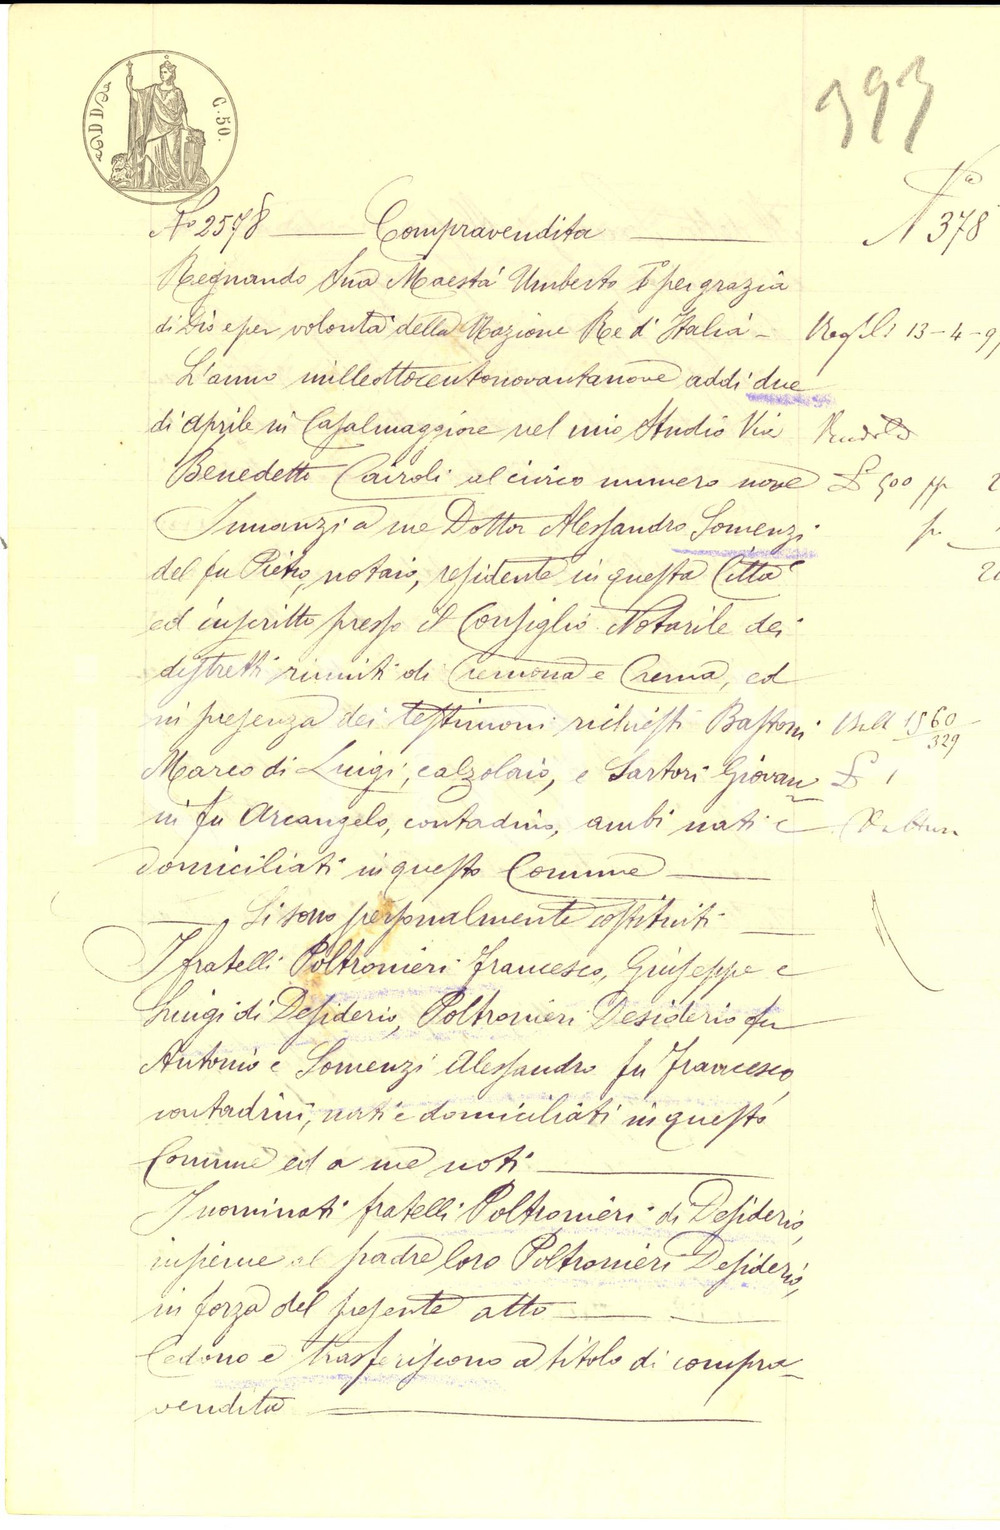 C. 50.
393
No 2578 Compravendita
No 378
Regnando Sua Maestà Umberto Io per grazia
di Dio e per volontà della Nazione Re d'Italia
L'anno milleottocentonovantanove addi due
di Aprile in Casalmaggiore nel mio Studio Via
Benedetto Cairoli al civico numero nove
Innanzi a me Dottor Alessandro Somenzi
del fu Pietro, notaio, residente in questa Città
ed inscritto presso il Consiglio Notarile dei
distretti riuniti di Cremona e Crema, ed
in presenza dei testimoni richiesti Bastoni
Marco di Luigi, calzolaio, e Sartori Giovan
ni fu Arcangelo, contadino, ambi nati e
domiciliati in questo Comune
Si sono personalmente costituiti
I fratelli Poltronieri Francesco, Giuseppe e
Luigi di Desiderio, Poltronieri Desiderio fu
Antonio e Somenzi Alessandro fu Francesco,
contadini, nati e domiciliati in questo
Comune ed a me noti
I nominati fratelli Poltronieri di Desiderio,
insieme al padre loro Poltronieri Desiderio,
in forza del presente atto
Cedono e trasferiscono a titolo di compra
vendita
13-4-9
£ 500
1560
329
£ 1